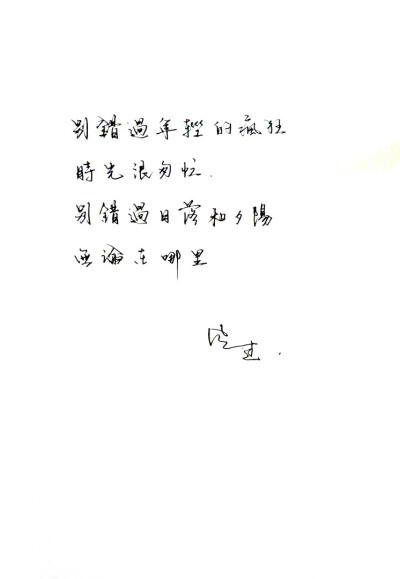 別錯過年輕的瘋狂
時光很匆忙.
別錯過日落和夕陽
無論在哪里